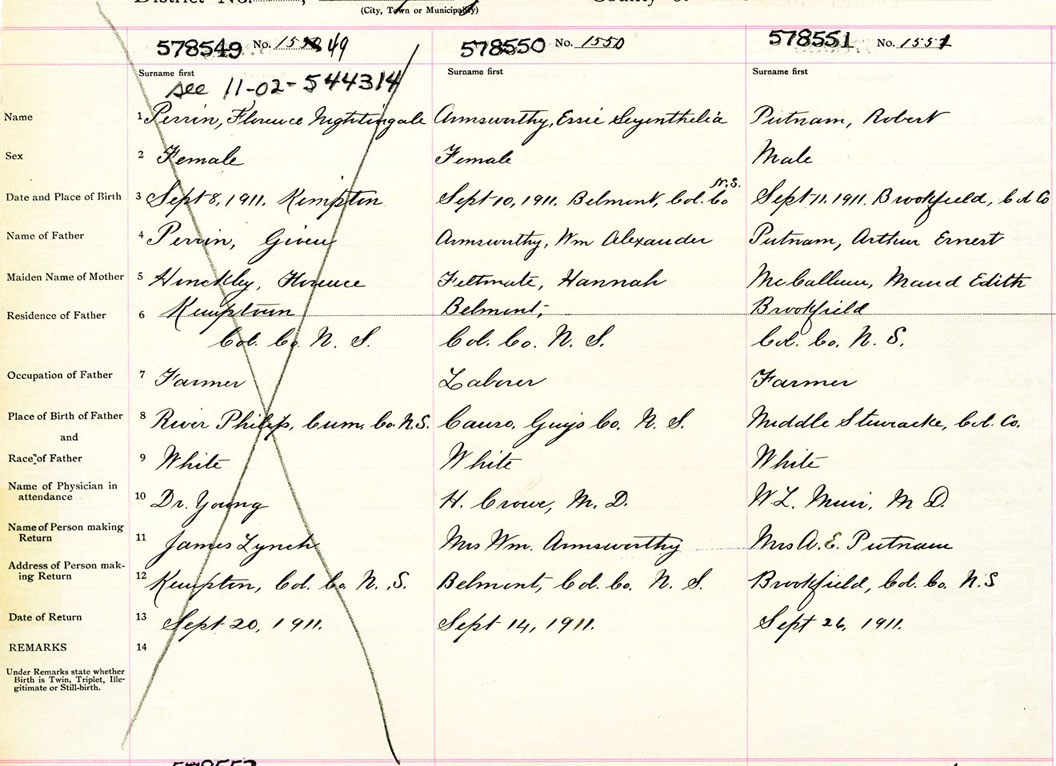 District No.
County of
(City, Town or Municipality)
578549 No. 1549
578550 No. 1550
578551 No. 1551
Surname first
Surname first
Surname first
See 11-02-544314
Name 1 Perrin, Florence Nightingale
Armsworthy, Essie Seyenthelia
Putnam, Robert
Sex 2 Female
Female
Male
Date and Place of Birth 3 Sept 8, 1911. Kempton
Sept 10, 1911. Belmont, Col. Co N.S.
Sept 11. 1911. Brookfield, Col Co
Name of Father 4 Perrin, Given
Armsworthy, Wm Alexander
Putnam, Arthur Ernest
Maiden Name of Mother 5 Hinckley, Florence
Feltmate, Hannah
McCallum, Maud Edith
Residence of Father 6 Kemptown
Belmont,
Brookfield
Col. Co. N. S.
Col. Co. N. S.
Col. Co. N. S.
Occupation of Father 7 Farmer
Laborer
Farmer
Place of Birth of Father 8 River Philip, Cum. Co. N.S.
Canso, Guys Co. N. S.
Middle Stewiacke, Col. Co.
and
Race of Father 9 White
White
White
Name of Physician in
attendance 10 Dr. Young
H. Crowe, M. D.
W L. Muir, M D.
Name of Person making
Return 11 James Lynch
Mrs Wm. Armsworthy
Mrs A. E. Putnam
Address of Person mak-
ing Return 12 Kempton, Col. Co. N. S.
Belmont, Col. Co. N. S.
Brookfield, Col. Co. N. S
Date of Return 13 Sept. 20, 1911.
Sept 14, 1911.
Sept 26, 1911.
REMARKS 14
Under Remarks state whether
Birth is Twin, Triplet, Ille-
gitimate or Still-birth.